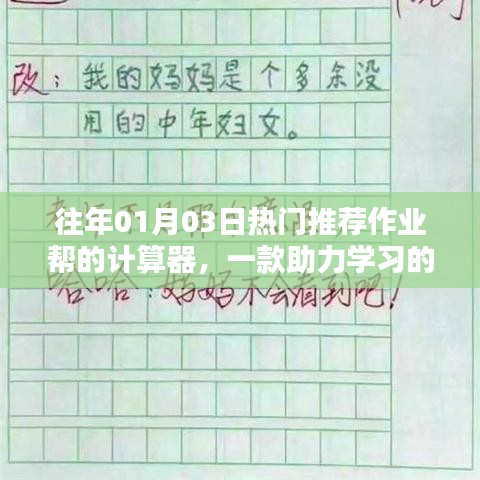 改：我的妈妈是个多余没
用的中年妇女。
往年01月03日热门推荐作业
帮的计算器，一款助力学习的
哈哈：妈妈不会看到吧！